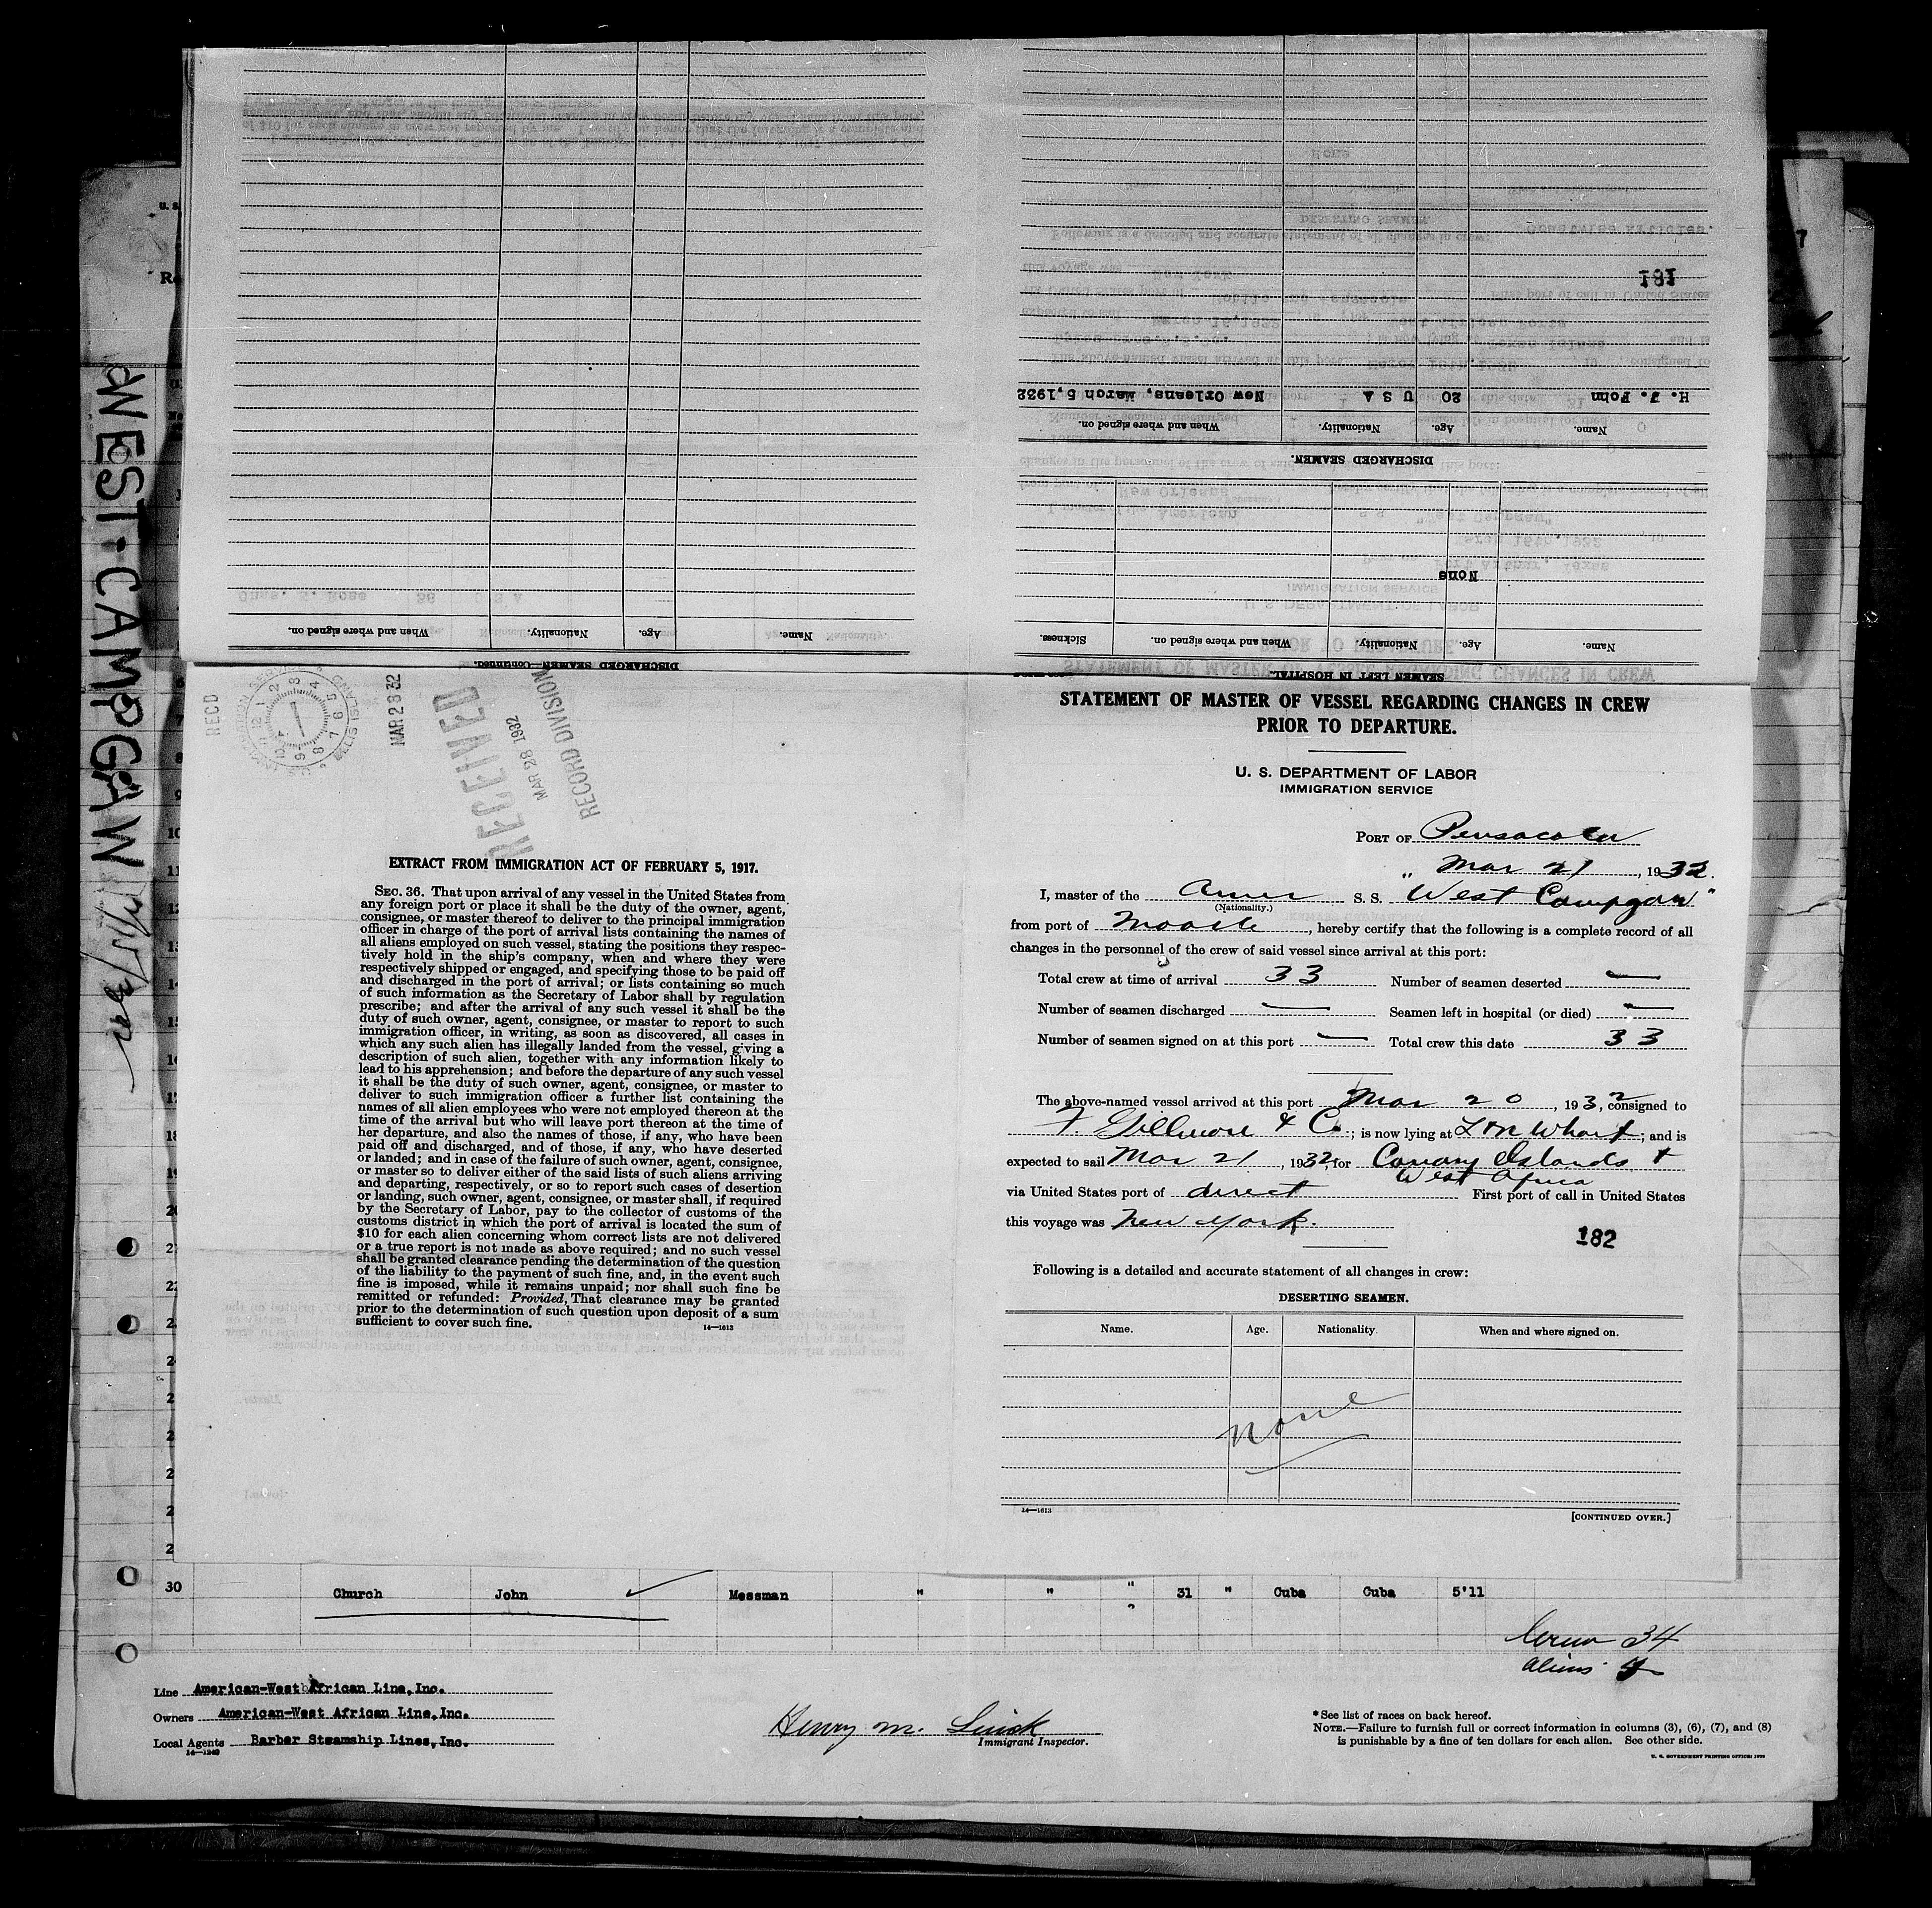 WEST-CAMPGAW
DISCHARGED SEAMEN—Continued.
Name.
Age.
Nationality.
When and where signed on.
SEAMEN LEFT IN HOSPITAL.
Name.
Age.
Nationality.
When and where signed on.
Sickness.
None
DISCHARGED SEAMEN.
Name.
Age.
Nationality.
When and where signed on.
H. J. Fohn 20 U S A New Orleans, March 5, 1932
181
RECD
MAR 28 32
RECEIVED
MAR 28 1932
RECORD DIVISION
EXTRACT FROM IMMIGRATION ACT OF FEBRUARY 5, 1917.
SEC. 36. That upon arrival of any vessel in the United States from
any foreign port or place it shall be the duty of the owner, agent,
consignee, or master thereof to deliver to the principal immigration
officer in charge of the port of arrival lists containing the names of
all aliens employed on such vessel, stating the positions they respec-
tively hold in the ship's company, when and where they were
respectively shipped or engaged, and specifying those to be paid off
and discharged in the port of arrival; or lists containing so much
of such information as the Secretary of Labor shall by regulation
prescribe; and after the arrival of any such vessel it shall be the
duty of such owner, agent, consignee, or master to report to such
immigration officer, in writing, as soon as discovered, all cases in
which any such alien has illegally landed from the vessel, giving a
description of such alien, together with any information likely to
lead to his apprehension; and before the departure of any such vessel
it shall be the duty of such owner, agent, consignee, or master to
deliver to such immigration officer a further list containing the
names of all alien employees who were not employed thereon at the
time of the arrival but who will leave port thereon at the time of
her departure, and also the names of those, if any, who have been
paid off and discharged, and of those, if any, who have deserted
or landed; and in case of the failure of such owner, agent, consignee,
or master so to deliver either of the said lists of such aliens arriving
and departing, respectively, or so to report such cases of desertion
or landing, such owner, agent, consignee, or master shall, if required
by the Secretary of Labor, pay to the collector of customs of the
customs district in which the port of arrival is located the sum of
$10 for each alien concerning whom correct lists are not delivered
or a true report is not made as above required; and no such vessel
shall be granted clearance pending the determination of the question
of the liability to the payment of such fine, and, in the event such
fine is imposed, while it remains unpaid; nor shall such fine be
remitted or refunded: Provided, That clearance may be granted
prior to the determination of such question upon deposit of a sum
sufficient to cover such fine.
14—1613
STATEMENT OF MASTER OF VESSEL REGARDING CHANGES IN CREW
PRIOR TO DEPARTURE.
U. S. DEPARTMENT OF LABOR
IMMIGRATION SERVICE
PORT OF Pensacola
" Mar 21, 1932.
I, master of the Amer S. S. "West Campgaw"
(Nationality.)
from port of Mobile, hereby certify that the following is a complete record of all
changes in the personnel of the crew of said vessel since arrival at this port:
Total crew at time of arrival 33 Number of seamen deserted —
Number of seamen discharged — Seamen left in hospital (or died) —
Number of seamen signed on at this port — Total crew this date 33
The above-named vessel arrived at this port Mar 20, 1932, consigned to
F. Gillmore & Co.; is now lying at L&N Wharf; and is
expected to sail Mar 21, 1932, for Canary Islands &
West Africa
via United States port of direct First port of call in United States
this voyage was New York.
182
Following is a detailed and accurate statement of all changes in crew:
DESERTING SEAMEN.
Name. Age. Nationality When and where signed on.
None
14—1613
[CONTINUED OVER.]
30 Church John Messman " " " 31 " Cuba Cuba 5'11
Crew 34
Aliens
Line American-West African Line, Inc.
Owners American-West African Line, Inc.
Local Agents Barber Steamship Lines, Inc.
14—1240
Henry M.
Immigrant Inspector.
* See list of races on back hereof.
NOTE.—Failure to furnish full or correct information in columns (3), (6), (7), and (8)
is punishable by a fine of ten dollars for each alien. See other side.
U. S. GOVERNMENT PRINTING OFFICE: